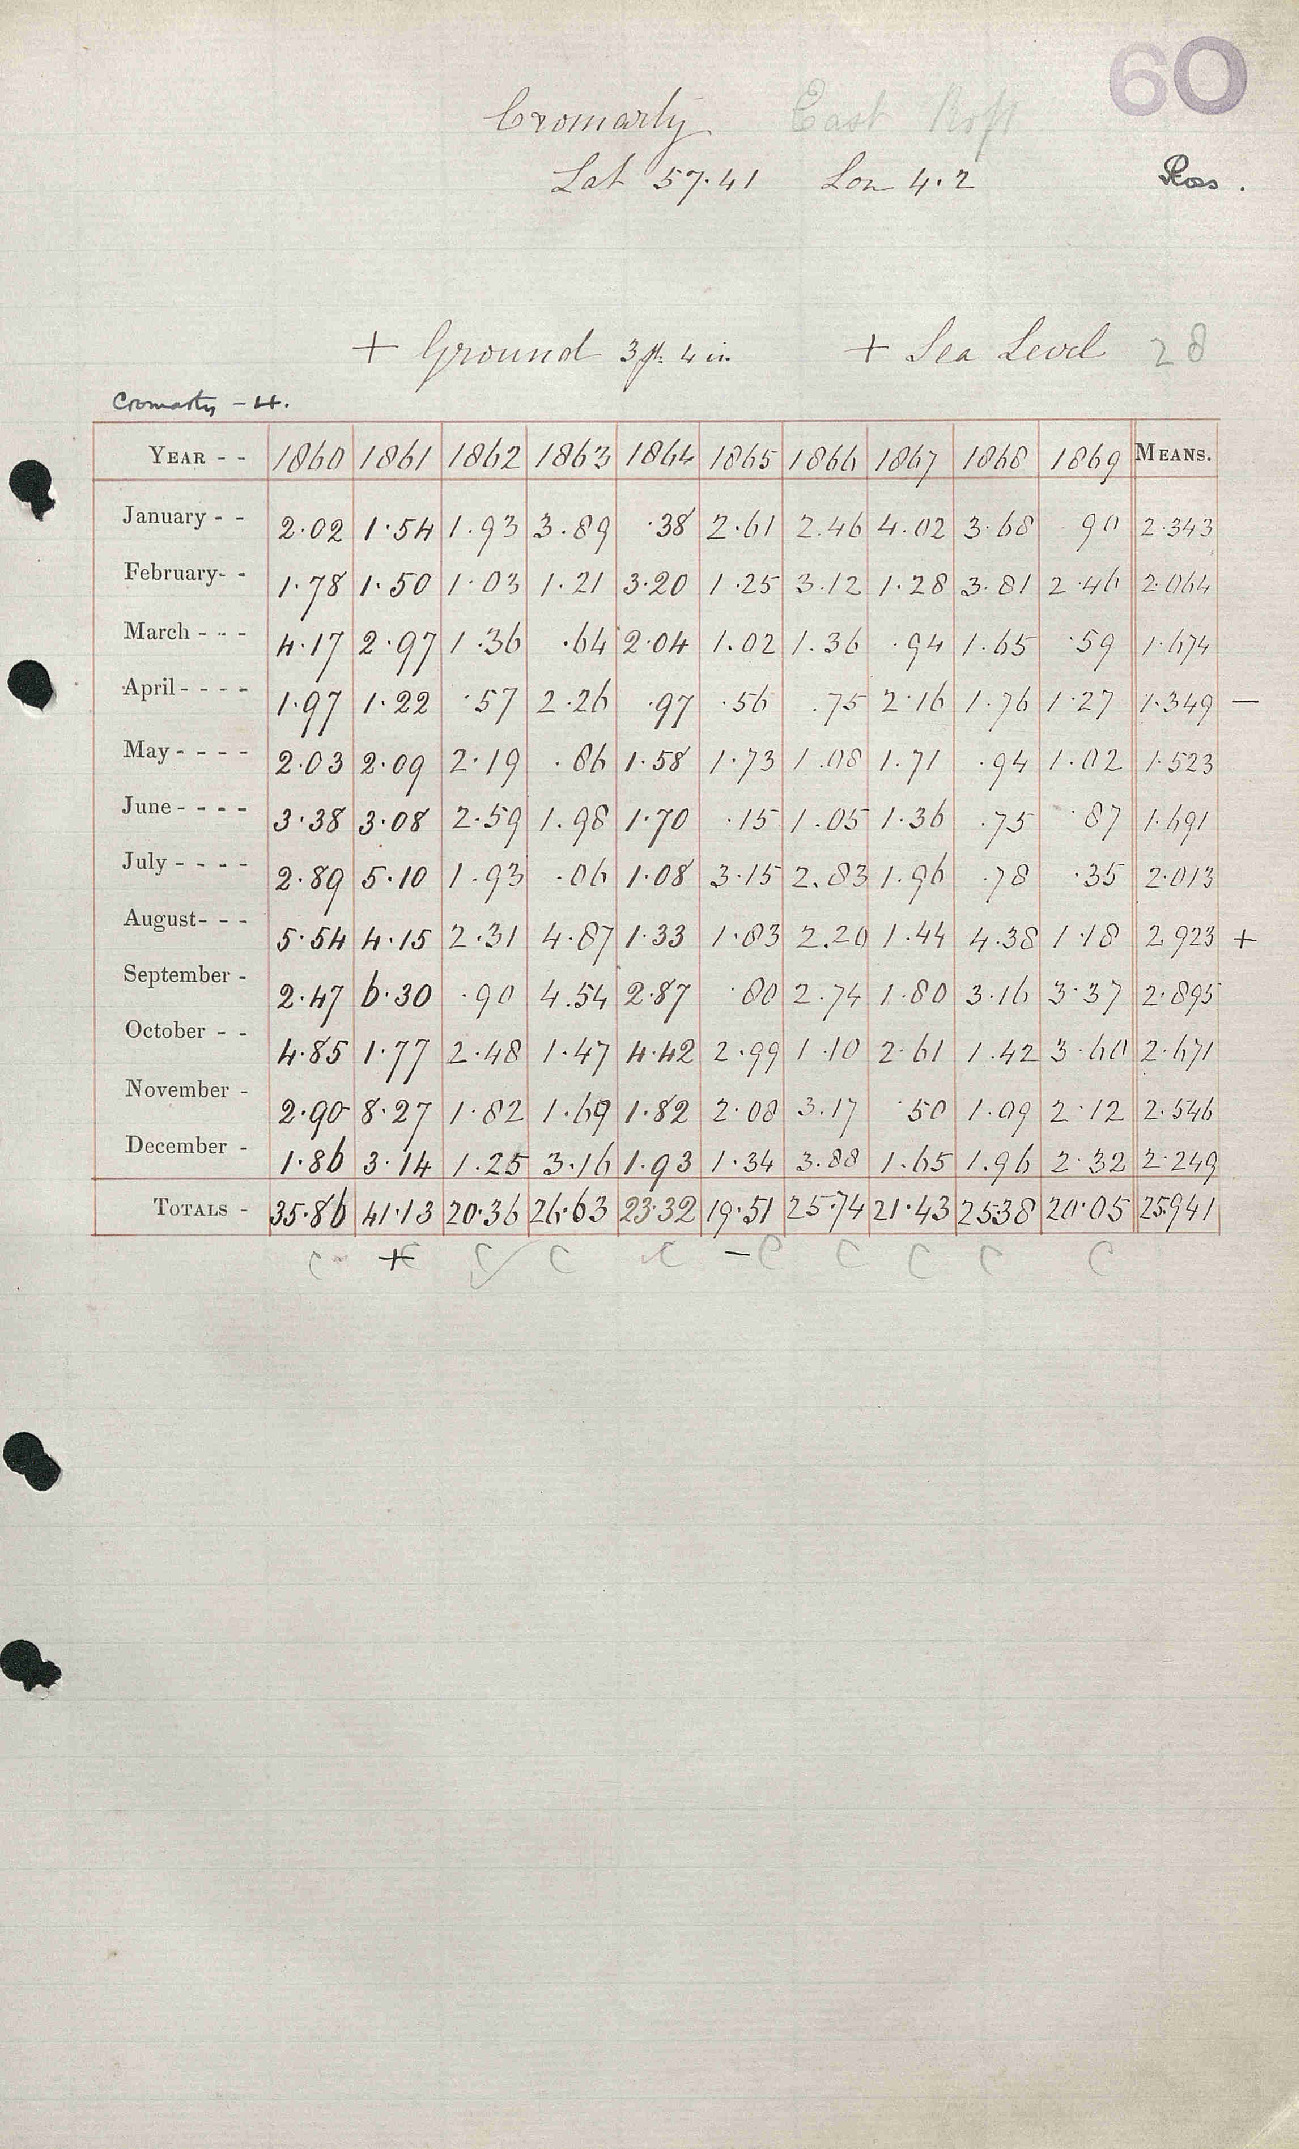 60
Cromarty East Ross
Lat 57.41 Lon 4.2 Ross.
+ Ground 3 ft. 4 in. + Sea Level 28
Cromarty - H.
YEAR - - 1860 1861 1862 1863 1864 1865 1866 1867 1868 1869 MEANS.
January - - 2.02 1.54 1.93 3.89 .38 2.61 2.46 4.02 3.68 .90 2.343
February- - 1.78 1.50 1.03 1.21 3.20 1.25 3.12 1.28 3.81 2.46 2.064
March - - - 4.17 2.97 1.36 .64 2.04 1.02 1.36 .94 1.65 .59 1.674
April - - - - 1.97 1.22 .57 2.26 .97 .56 .75 2.16 1.76 1.27 1.349 —
May - - - - 2.03 2.09 2.19 .86 1.58 1.73 1.08 1.71 .94 1.02 1.523
June - - - - 3.38 3.08 2.59 1.98 1.70 .15 1.05 1.36 .75 .87 1.691
July - - - - 2.89 5.10 1.93 .06 1.08 3.15 2.83 1.96 .78 .35 2.013
August- - - 5.54 4.15 2.31 4.87 1.33 1.83 2.20 1.44 4.38 1.18 2.923 +
September - 2.47 6.30 .90 4.54 2.87 .80 2.74 1.80 3.16 3.37 2.895
October - - 4.85 1.77 2.48 1.47 4.42 2.99 1.10 2.61 1.42 3.60 2.671
November - 2.90 8.27 1.82 1.69 1.82 2.08 3.17 .50 1.09 2.12 2.546
December - 1.86 3.14 1.25 3.16 1.93 1.34 3.88 1.65 1.96 2.32 2.249
TOTALS - 35.86 41.13 20.36 26.63 23.32 19.51 25.74 21.43 25.38 20.05 25.941
C + C C C C - C C C C C